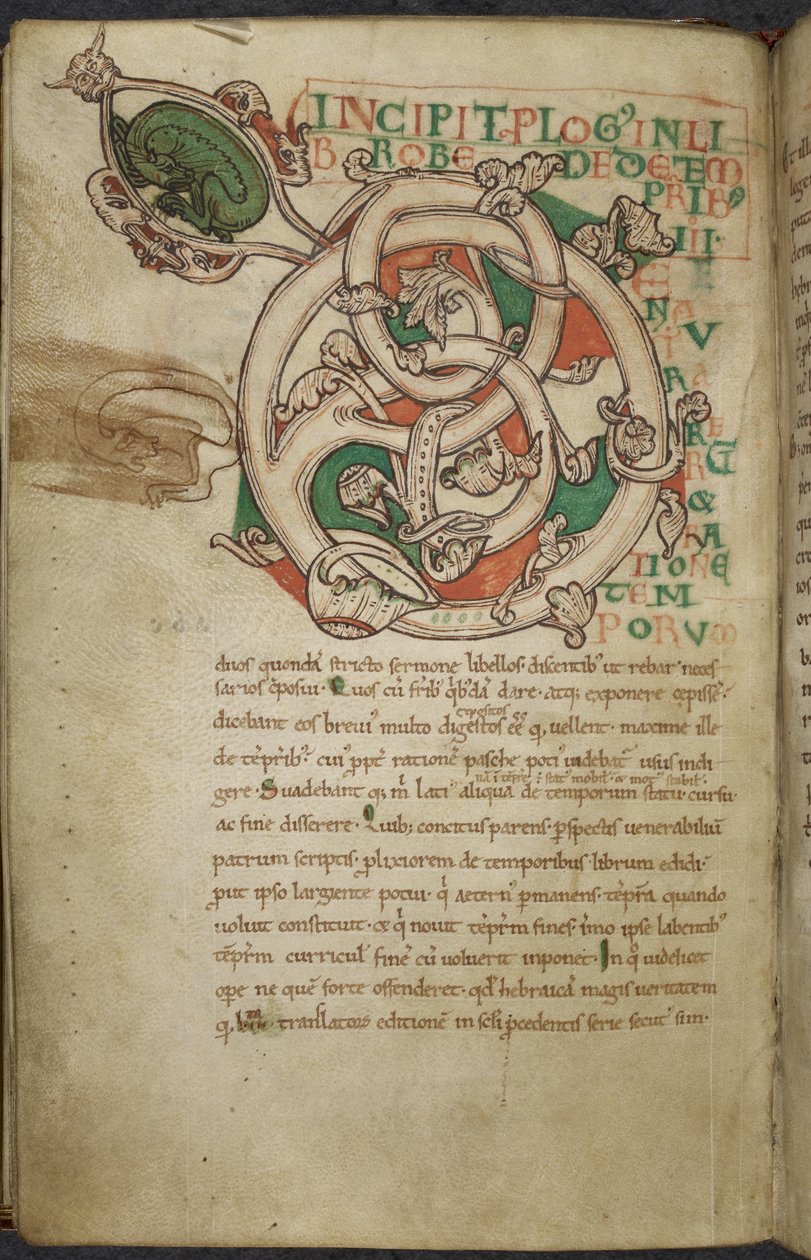 INCIPIT PLOG' IN LI
B ROBE DE DE TEM
PRIB'
III·
DE
NA
TV
RA
RE
&
RA
TIONE
TEM
PORVM
duos quondā stricto sermone libellos· discentib' ut rebar· neces
sarios cposui· Quos cū frib' qb'dā dare· atq; exponere cepissē·
expositos
dicebant eos breui' multo digestos eē q, uellent· maxime ille
de tēprib'· cui' ppt rationē pasche poti' uidebat usus indi
gere· Suadebant q; m lati' aliqua de temporum statu· cursu·
ac fine disserere· Quib; concitus parens· pspectis uenerabiliū
patrum scriptis· plixiorem de temporibus librum edidi·
put ipso largiente potui· qi aetern' pmanens· tēpra quando
uoluit constituit· & qi nouit tēprm fines· īmo ipse labentib'
tēprm curricul' finē cū uoluerit inponet· In qo uidelicet
ope ne quē forte offenderet· qd hebraicā magis ueritatem
q, translatorū editionē in scli pcedentis serie secut' sim·